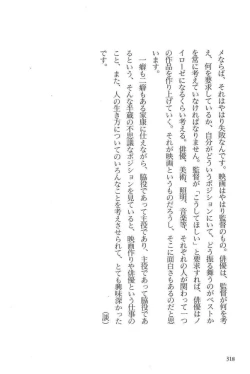 メならば、それはやはり失敗なんです。映画はやはり監督のもの。俳優は、監督が何を考
え、何を要求しているか、自分がどういうポジションにいて、どう振る舞うのがベストか
を常に考えていなければなりません。監督が「こうしてほしい」と要求すれば、俳優はノ
イローゼになるくらい考える。俳優、美術、照明、音楽等、それぞれの人が関わって一つ
の作品を作り上げていく。それが映画というものだろうし、そこに面白さもあるのだと思
います。
一癖も二癖もある家康に仕えながら、脇役であって主役であり、主役であって脇役であ
るという、そんな半蔵の不思議なポジションを見ていると、映画作りや俳優という仕事の
こと、また、人の生き方についてのいろんなことを考えさせられて、とても興味深かった
です。
（談）
318